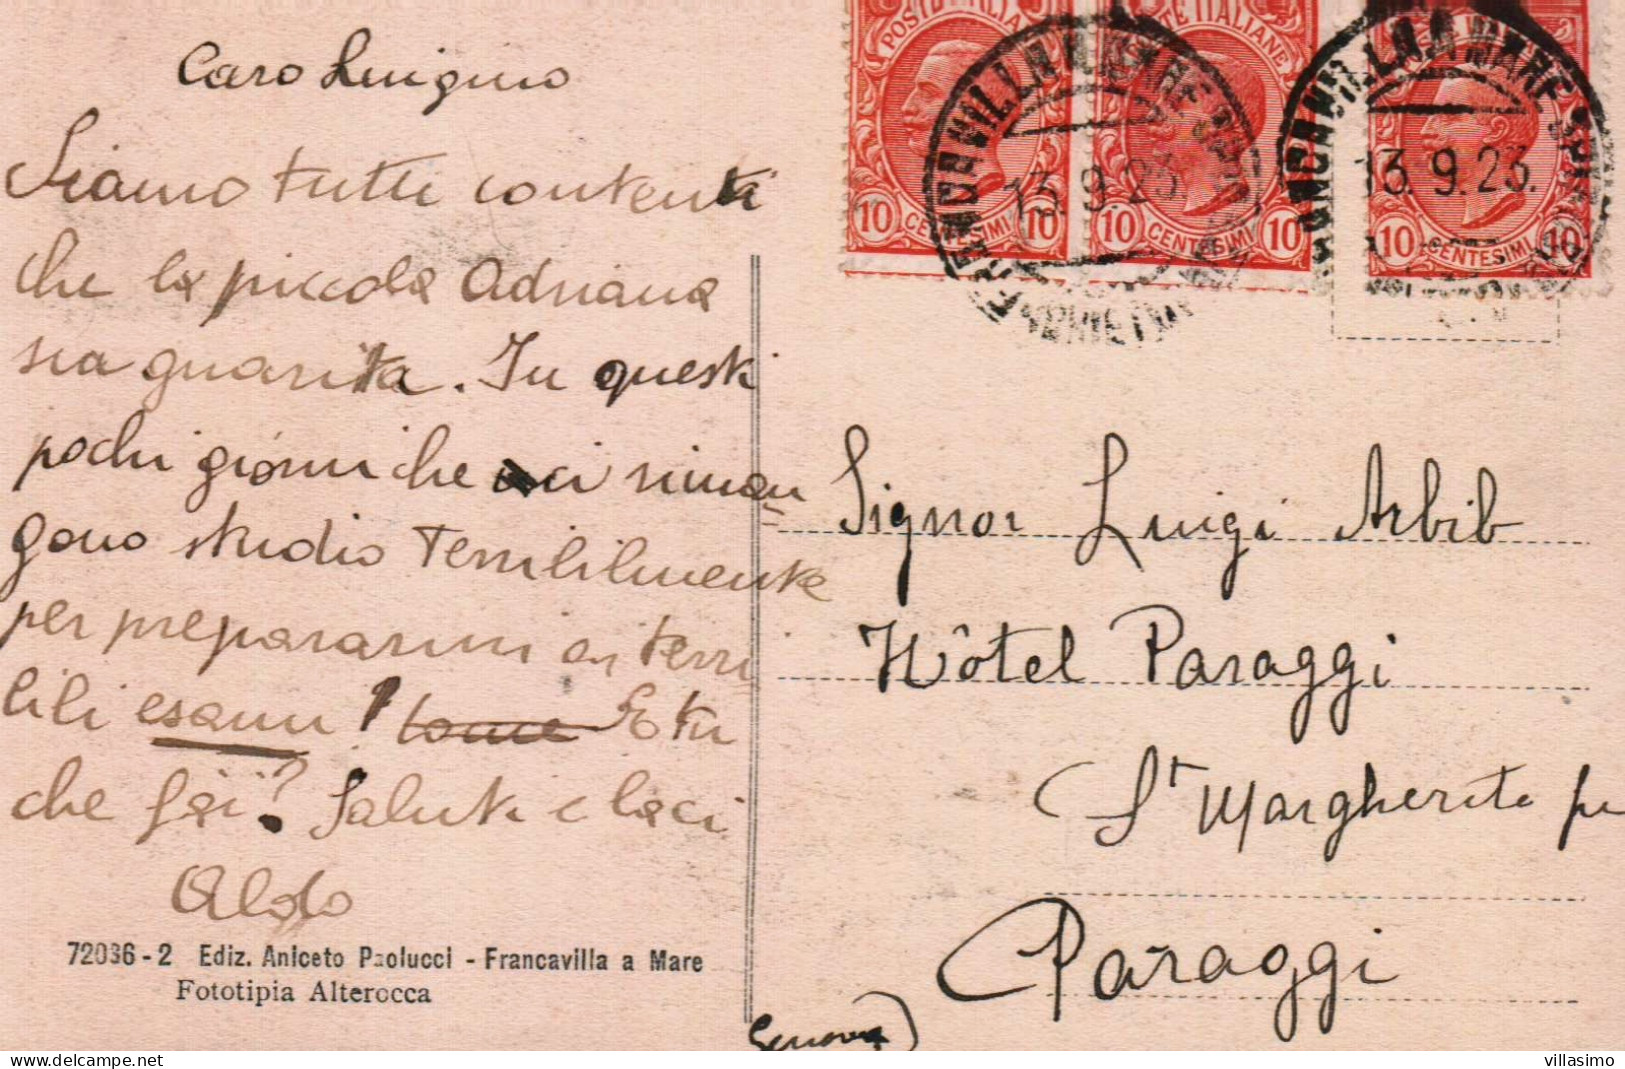 Caro Luigino
Siamo tutti contenti
che la piccola Adriana
sia guarita. In questi
pochi giorni che ci riman
gono studio Terribilmente
per prepararmi ai terri
bili esami! E tu
che fai? Saluti e baci
Aldo
72036 - 2 Ediz. Aniceto Paolucci - Francavilla a Mare
Fototipia Alterocca
POSTE ITALIANE
10 CENTESIMI 10
POSTE ITALIANE
10 CENTESIMI 10
10 CENTESIMI 10
FRANCAVILLA A MARE
13.9.23
FRANCAVILLA A MARE
13.9.23.
Signor Luigi Arbib
Hôtel Paraggi
(St Margherita pe
Paraggi
Genova)
villasimo